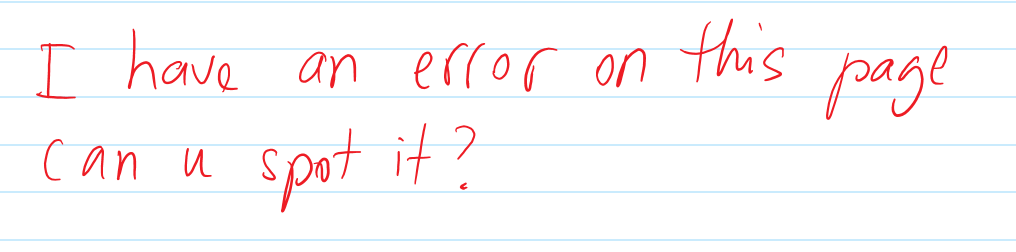 I have an error on this page
can u spot it?